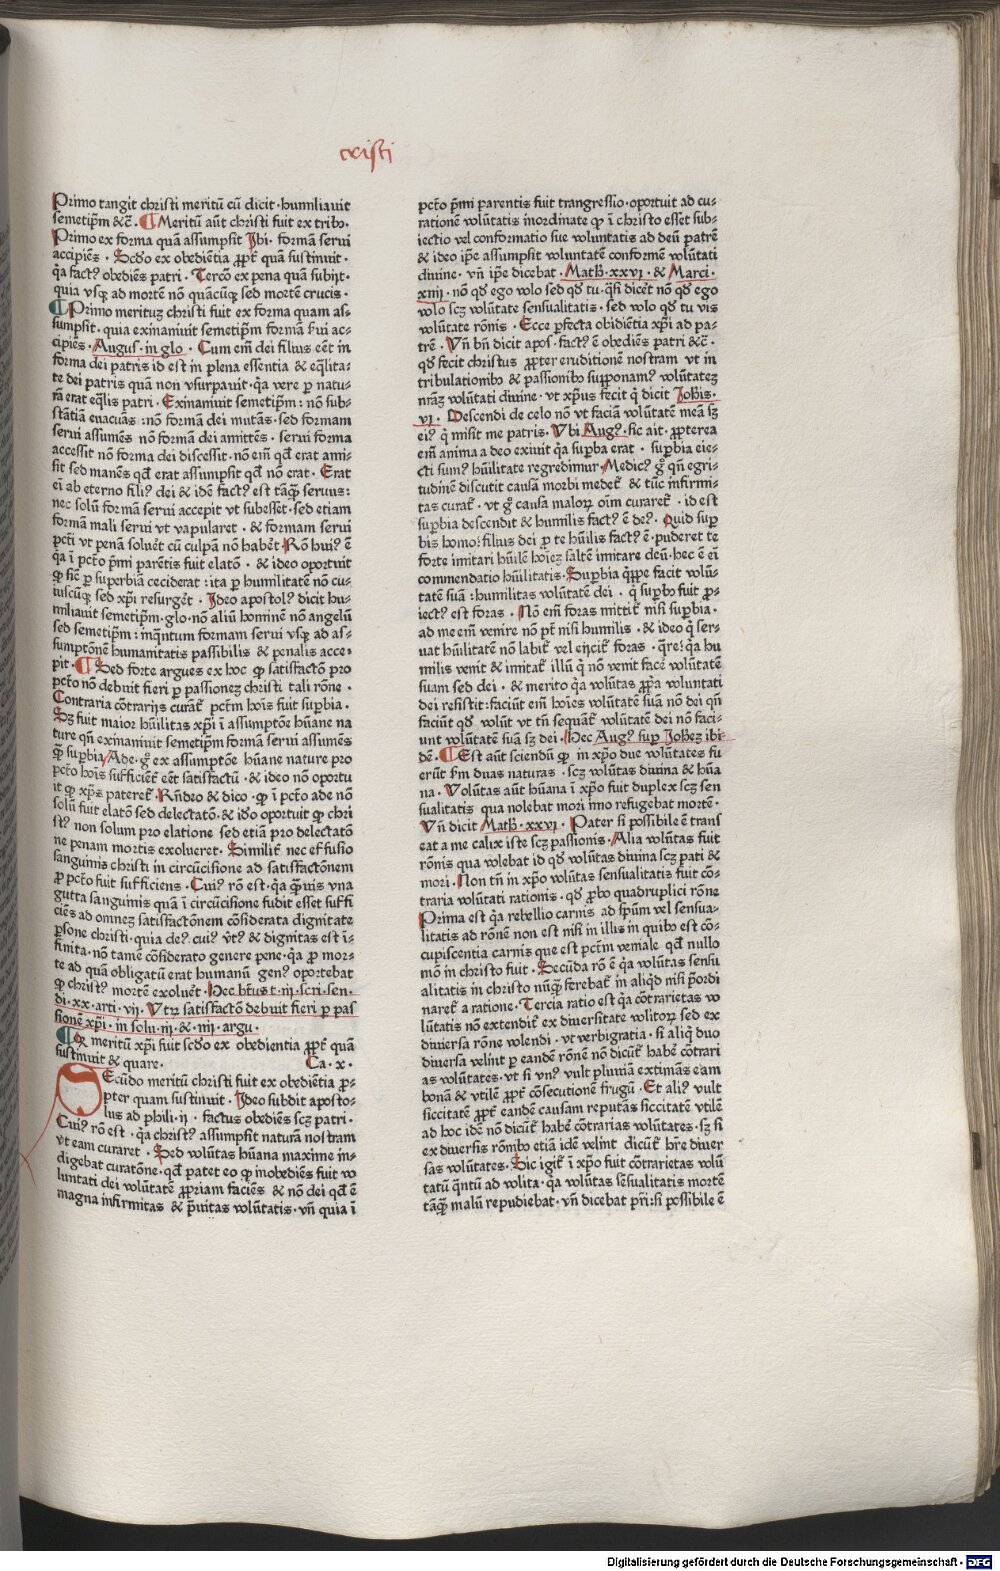 cristi
Primo tangit christi meritũ cũ dicit · humiliauit
semetip̃m &c̃ · Meritũ aũt christi fuit ex tribꝯ·
Primo ex forma quã assumpsit Ibi· formã serui
accipiẽs · Scđo ex obediẽtia ꝓpt̃ quã sustinuit·
q̃a factꝰ obediẽs patri · Tercõ ex pena quã subijt·
quia vsqꝫ ad mortẽ nõ quãcũqꝫ sed mortẽ crucis·
Primo meritũ christi fuit ex forma quam as⸗
sumpsit· quia exinaniuit semetip̃m formã s̃ui ac⸗
cipiẽs· Augus· in glo · Cum em̃ dei filius eẽt in
forma dei patris id est in plena essentia & eq̃lita⸗
te dei patris quã non vsurpauit· q̃a vere p̱ natu⸗
rã erat eq̃lis patri · Exinaniuit semetip̃m : nõ sub⸗
stãtiã euacuãs :nõ formã dei mutãs· sed formam
serui assumẽs nõ formã dei amittẽs · serui forma
accessit nõ forma dei discessit · nõ em̃ qđ erat ami⸗
sit sed manẽs qđ erat assumpsit qđ nõ erat · Erat
ei ab eterno filiꝰ dei & idẽ factꝰ est tãq̃ȝ seruus:
nec solũ formã serui accepit vt subesset· sed etiam
formã mali serui vt vapularet · & formam serui
pct̃i vt penã soluẽt cũ culpã nõ habẽt· Rõ huiꝰ ẽ
q̃a ĩ pct̃o p̃mi parẽtis fuit elatõ · & ideo oportuit
ꝙ sic̃ p̱ superbiã ceciderat : ita p̱ humilitatẽ nõ cu⸗
iuscũqꝫ sed xp̃i resurgẽt · Ideo apostolꝰ dicit hu⸗
miliauit semetip̃m· glo· nõ aliũ hominẽ nõ angelũ
sed semetip̃m : inq̃ntum formam serui vsqꝫ ad as⸗
sumptõnẽ humanitatis passibilis & penalis acce⸗
pit · Sed forte argues ex hoc ꝙ satisfactõ pro
pct̃o nõ debuit fieri p̱ passioneȝ christi tali rõne ·
Contraria cõtrarijs curãt̃ pct̃m hoĩs fuit supbia·
Sȝ fuit maior hũilitas xp̃i ĩ assumptõe hũane na
ture qñ exinaniuit semetip̃m formã serui assumẽs
q̃ȝ suꝑbia Ade · g̊ ex assumptõe hũane nature pro
pct̃o hoĩs sufficiẽt̃ eẽt satisfactũ · & ideo nõ oportu
it ꝙ xp̃s pateret̃ · Rñdeo & dico · ꝙ ĩ pct̃o ade nõ
solũ fuit elatõ sed delectatõ· & iđo oportuit ꝙ chri
stꝰ non solum pro elatione sed etiã pro delectatõ
ne penam mortis exolueret · Similit̃ nec effusio
sanguinis christi in circũcisione ad satisfactõnem
ꝓ pct̃o fuit sufficiens · Cuiꝰ rõ est · q̃a q̃ȝuis vna
gutta sanguinis quã ĩ circũcisione fudit esset suffi
ciẽs ad omneȝ satisfactõnem cõsiderata dignitate
p̱sone christi · quia deꝰ· cuiꝰ v̾tꝰ & dignitas est ĩ⸗
finita · nõ tamẽ cõsiderato genere pene· q̃a ꝓ mor⸗
te ad quã obligatũ erat humanũ genꝰ oportebat
ꝙ christꝰ mortẽ exoluẽt · Hec bt̃us t· iij· scri· sen·
di· xx· arti· vij· Vtꝝ satisfactõ debuit fieri p̱ pas
sionẽ xp̃i · in solu· iij· & iiij· argu·
Qꝝ meritũ xp̃i fuit scđo ex obedientia ꝓpt̃ quã
sustinuit & quare. Ca· x·
SEcũdo meritũ christi fuit ex obediẽtia ꝓ⸗
pter quam sustinuit · Ideo subdit aposto⸗
lus ad phili· ij · factus obediẽs scȝ patri ·
Cuiꝰ rõ est · q̃a christꝰ assumpsit naturã nostram
vt eam curaret · Sed volũtas hũana maxime in⸗
digebat curatõne· qđ patet eo ꝙ inobediẽs fuit vo
luntati dei volũtatẽ ꝓpriam faciẽs & nõ dei qđ ẽ
magna infirmitas & p̃uitas volũtatis· vñ quia ĩ
pct̃o p̃mi parentis fuit trangressio· oportuit ad cu⸗
rationẽ volũtatis inordinate ꝙ ĩ christo esset sub⸗
iectio vel conformatio sue voluntatis ad deũ patrẽ
& ideo ip̃e assumpsit voluntatẽ conformẽ volũtati
diuine · vñ ip̃e dicebat · Math· xxvi · & Marci ·
xiiij · nõ qđ ego volo sed qđ tu· q̃si dicẽt nõ qđ ego
volo scȝ volũtate sensualitatis · sed volo qđ tu vis
volũtate rõnis · Ecce p̱fecta obidiẽtia xp̃i ad pa⸗
trẽ · Vñ bñ dicit apos · factꝰ ẽ obediẽs patri &c̃ ·
qđ fecit christus ꝓpter eruditionẽ nostram vt in
tribulationibꝯ & passionibꝯ supponamꝰ volũtateȝ
nr̃aȝ volũtati diuine · vt xp̃us fecit q̃ dicit Johis·
vi· Descendi de celo nõ vt faciã volũtatẽ meã sȝ
eiꝰ q̃ misit me patris · Vbi Augꝰ· sic ait · ꝓpterea
em̃ anima a deo exiuit q̃a suꝑba erat · suꝑbia eie⸗
cti sumꝰ hũilitate regredimur · Medicꝰ g̊ qñ egri⸗
tudinẽ discutit causã morbi medet̃ & tũc infirmi⸗
tas curat̃ · vt g̊ causa maloꝝ oĩm curaret̃ · id est
suꝑbia descendit & humilis factꝰ ẽ deꝰ · Quid suꝑ
bis homo: filius dei p̱ te hũilis factꝰ ẽ· puderet te
forte imitari hũilẽ hoĩeȝ saltẽ imitare deũ· hec ẽ eĩ
commendatio hũilitatis · Suꝑbia q̃ppe facit volũ⸗
tatẽ suã : humilitas volũtatẽ dei · q̃ suꝑbꝯ fuit ꝓ⸗
iectꝰ est foras · Nõ em̃ foras mittit̃ nisi suꝑbia ·
ad me em̃ venire nõ pt̃ nisi humilis · & ideo q̃ ser⸗
uat hũilitatẽ nõ labit̃ vel eijcit̃ foras · q̃re: q̃a hu
milis venit & imitat̃ illũ q̃ nõ venit facẽ volũtatẽ
suam sed dei · & merito q̃a volũtas ꝓp̃a voluntati
dei resistit : faciũt em̃ hoĩes volũtatẽ suã nõ dei qñ
faciũt qđ volũt vt tñ sequãt̃ volũtatẽ dei nõ faci⸗
unt volũtatẽ suã sȝ dei · Hec Augꝰ suꝑ Joheȝ ibi⸗
dẽ · Est aũt sciendũ ꝙ in xp̃o due volũtates fu
erũt s̃m duas naturas · scȝ volũtas diuina & hũa
na · Voluntas aũt hũana ĩ xp̃o fuit duplex scȝ sen
sualitatis qua nolebat mori imo refugebat mortẽ ·
Vñ dicit Math· xxvi · Pater si possibile ẽ trans
eat a me calix iste scȝ passionis · Alia volũtas fuit
rõnis qua volebat id qđ volũtas diuina scȝ pati &
mori · Non tñ in xp̃o volũtas sensualitatis fuit cõ⸗
traria volũtati rationis · qđ ꝓbo quadruplici rõne
Prima est q̃a rebellio carnis ad sp̃um vel sensua⸗
litatis ad rõnẽ non est nisi in illis in quibꝯ est cõ⸗
cupiscentia carnis que est pct̃m veniale qđ nullo
mõ in christo fuit · Secũda rõ ẽ q̃a volũtas sensu
alitatis in christo nũq̃ȝ ferebat̃ in aliq̃d nisi p̃ordi
naret̃ a ratione · Tercia ratio est q̃a cõtrarietas vo
lũtatis nõ extendit̃ ex diuersitate volitoꝝ sed ex
diuersa rõne volendi · vt verbigratia · si aliq̃ duo
diuersa velint p̱ eandẽ rõnẽ nõ dicũt̃ habẽ cõtrari
as volũtates· vt si vnꝰ vult pluuiã extimãs eam
bonã & vtilẽ ꝓpt̃ cõsecutionẽ frugũ · Et aliꝰ vult
siccitatẽ ꝓpt̃ eandẽ causam reputãs siccitatẽ vtilẽ
ad hoc idẽ nõ dicũt̃ habẽ cõtrarias volũtates· sȝ si
ex diuersis rõnibꝯ etiã idẽ velint dicũt̃ hr̃e diuer
sas volũtates· Sic igit̃ ĩ xp̃o fuit cõtrarietas volũ
tatũ q̃ntũ ad volita · q̃a volũtas sẽsualitatis mortẽ
tãq̃ȝ malũ repudiebat · vñ dicebat pr̃i: si possibile ẽ
Digitalisierung gefördert durch die Deutsche Forschungsgemeinschaft · DFG